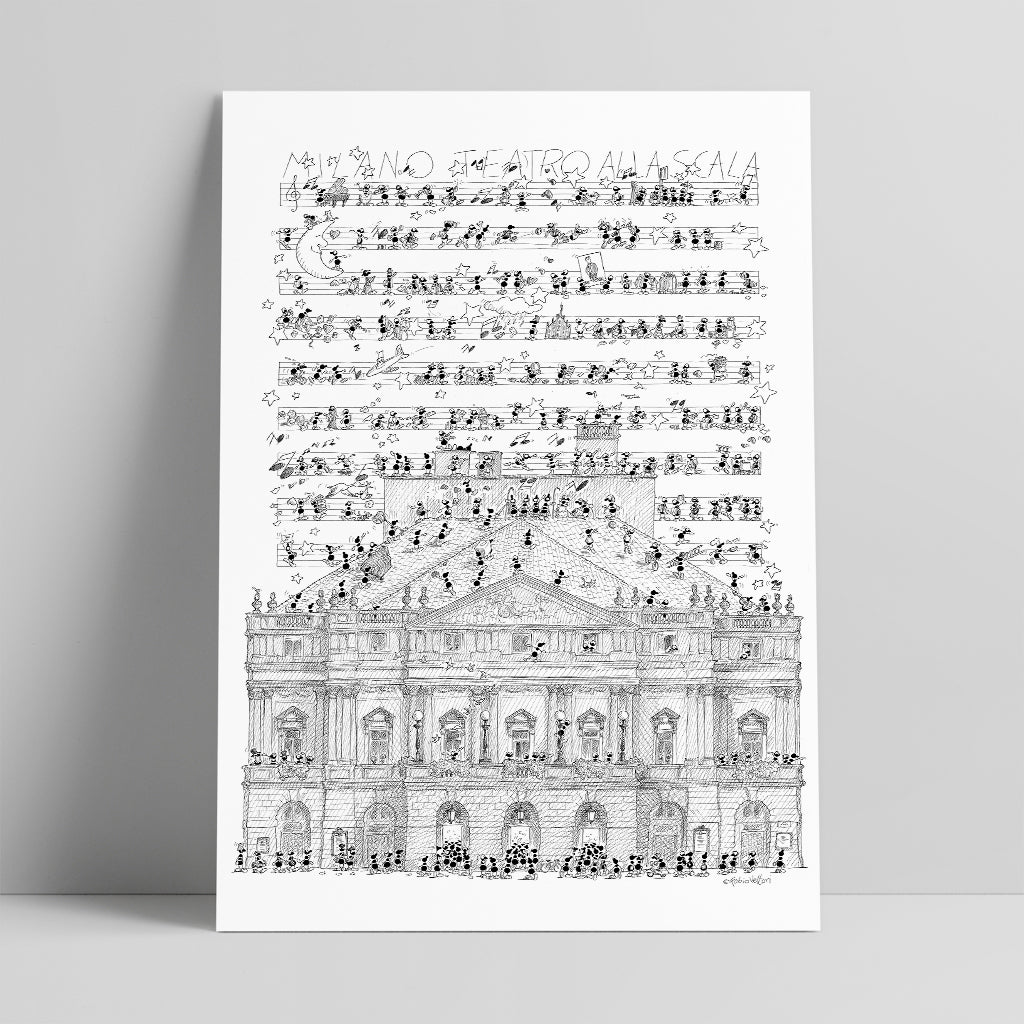 MILANO TEATRO ALLA SCALA
©Fabio Vettori